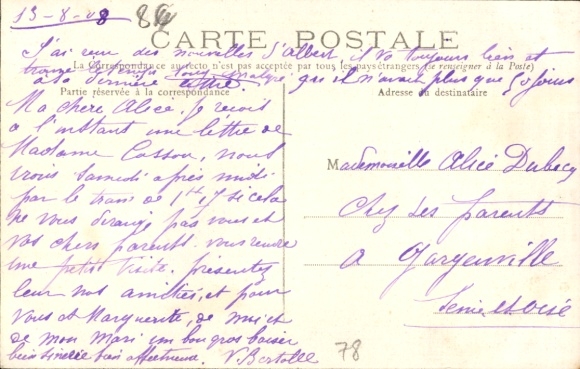 13-8-08 86
J'ai reçu des nouvelles d'Albert il va toujours bien et
CARTE POSTALE
La Correspondance au recto n'est pas acceptée par tous les pays étrangers (Se renseigner à la Poste)
trouve le temps long malgré qu'il n'avait plus que 50 jours
à sa dernière lettre.
Partie réservée à la correspondance
Adresse du destinataire
Ma chère Alice, je reçois
à l'instant une lettre de
Madame Cossou, nous
irons Samedi après midi
par le train de 1h,7 si cela
ne vous dérange pas vous et
vos chers parents vous rendre
une petite visite. présentez
leur nos amitiés, et pour
vous et Marguerite, de moi et
de mon Mari un bon gros baiser
bien sincère bien affectueux. V. Bertolle
Mademoiselle Alice Dubecq
Chez Ses parents
à Gargenville
Seine et Oise
78